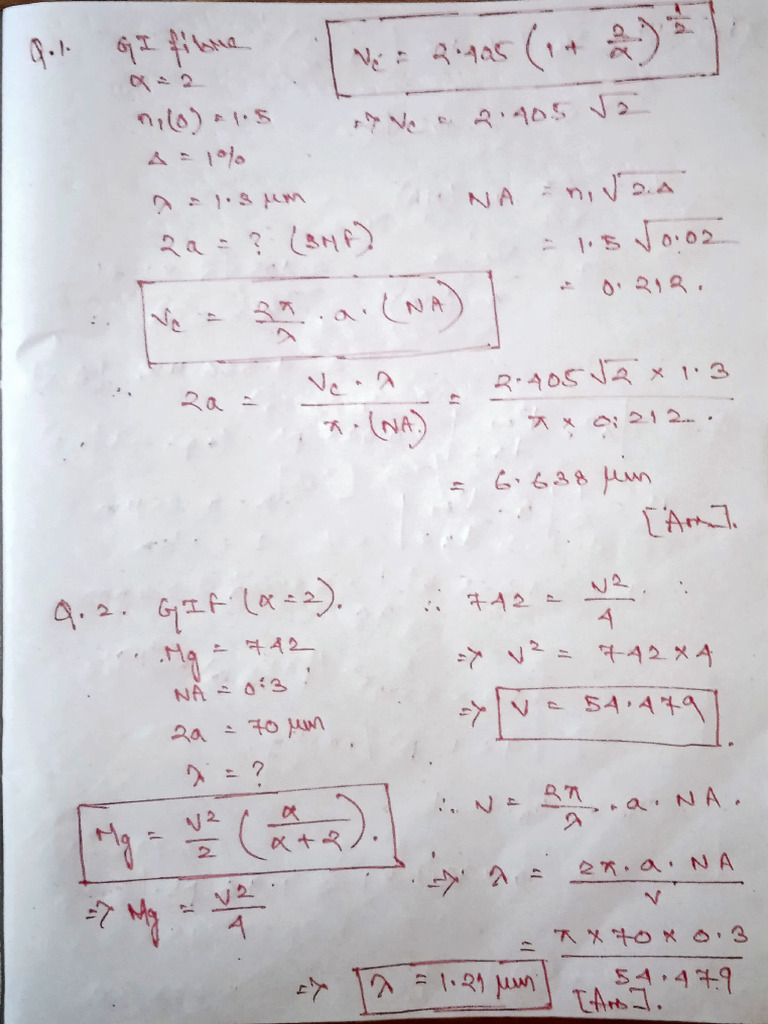 Q.1. GI fibre
α = 2
n₁(0) = 1.5
Δ = 1%
λ = 1.3 μm
2a = ? (SMF)
V_c = 2.405 (1 + 2/α)^{1/2}
⇒ V_c = 2.405 √2
NA = n₁√2Δ
= 1.5 √0.02
= 0.212.
∴ V_c = 2π/λ . a . (NA)
∴ 2a = V_c . λ / π . (NA) = 2.405 √2 × 1.3 / π × 0.212.
= 6.638 μm
[Ans].
Q.2. GIF (α = 2).
Mg = 742
NA = 0.3
2a = 70 μm
λ = ?
Mg = V²/2 (α / α + 2).
⇒ Mg = V²/4
∴ 742 = V²/4
⇒ V² = 742 × 4
⇒ V = 54.479.
∴ V = 2π/λ . a . NA.
⇒ λ = 2π . a . NA / V
= π × 70 × 0.3 / 54.479
⇒ λ = 1.21 μm [Ans].